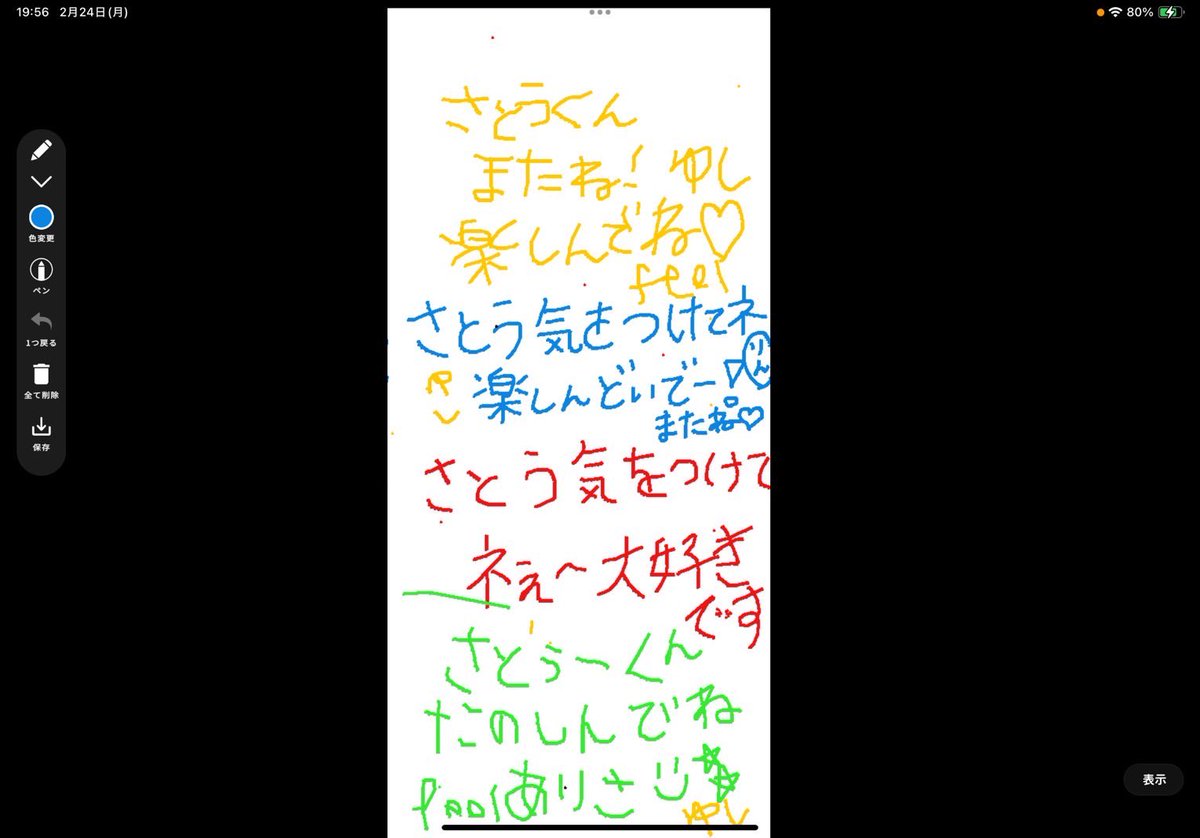 19:56 2月24日(月)
80%
色変更
ペン
1つ戻る
全て削除
保存
さとうくん
またね! ゆし
楽しんでね♡
さとう気をつけてネ
りん
楽しんどいでー
またね♡
さとう気をつけて
ネぇ〜大好き
です
さとぅーくん
たのしんでね
ありさ
ゆし
表示